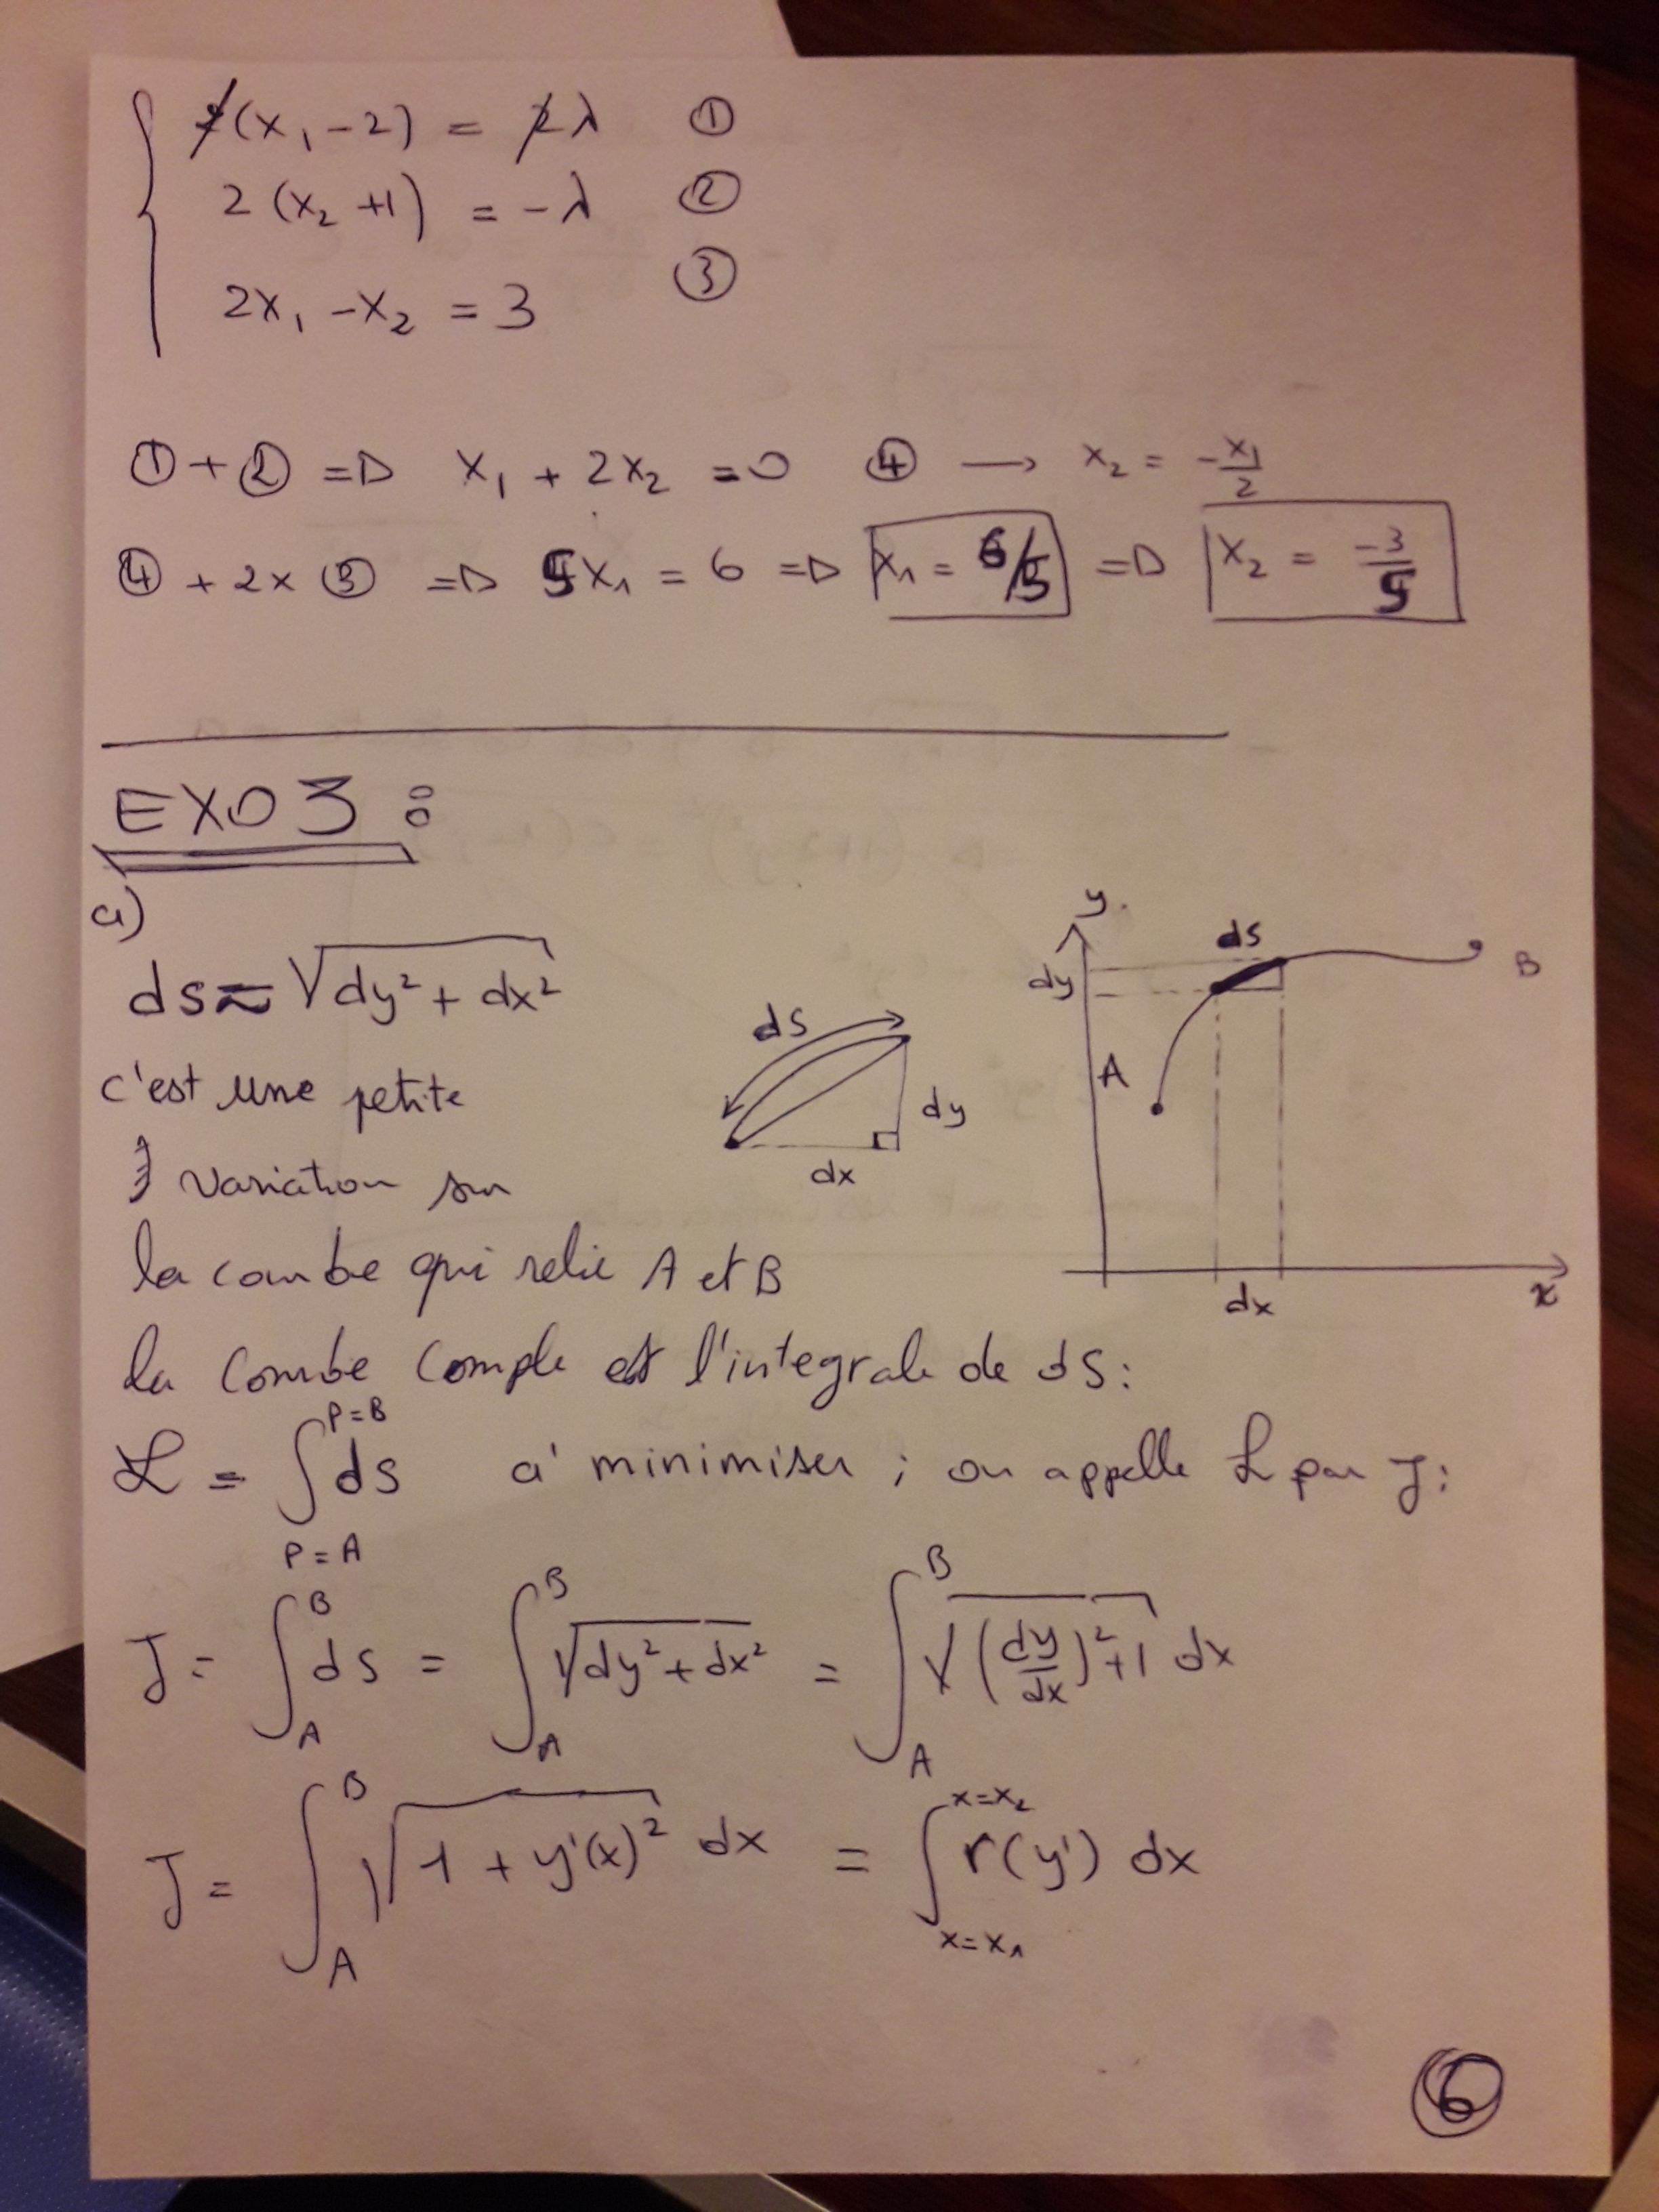 2̸(x₁ - 2) = 2̸λ ①
2(x₂ + 1) = -λ ②
2x₁ - x₂ = 3 ③
① + ② => x₁ + 2x₂ = 0 ④ → x₂ = -x₁/2
④ + 2x③ => 5x₁ = 6 => x₁ = 6/5 => x₂ = -3/5
EXO3 :
a)
ds ≈ √(dy² + dx²)
c'est une petite
variation sur
la courbe qui relie A et B
ds
dy
dx
y
ds
dy
B
A
dx
x
la courbe comple est l'integrale de ds :
ℒ = ∫_{P=A}^{P=B} ds a' minimiser ; on appelle ℒ par J :
J = ∫_A^B ds = ∫_A^B √(dy² + dx²) = ∫_A^B √((dy/dx)² + 1) dx
J = ∫_A^B √(1 + y'(x)²) dx = ∫_{x=x₁}^{x=x₂} r(y') dx
6